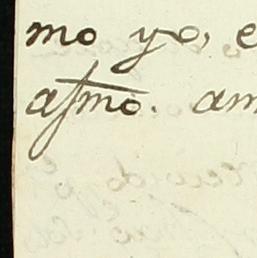 mo yo, e
afmo. am